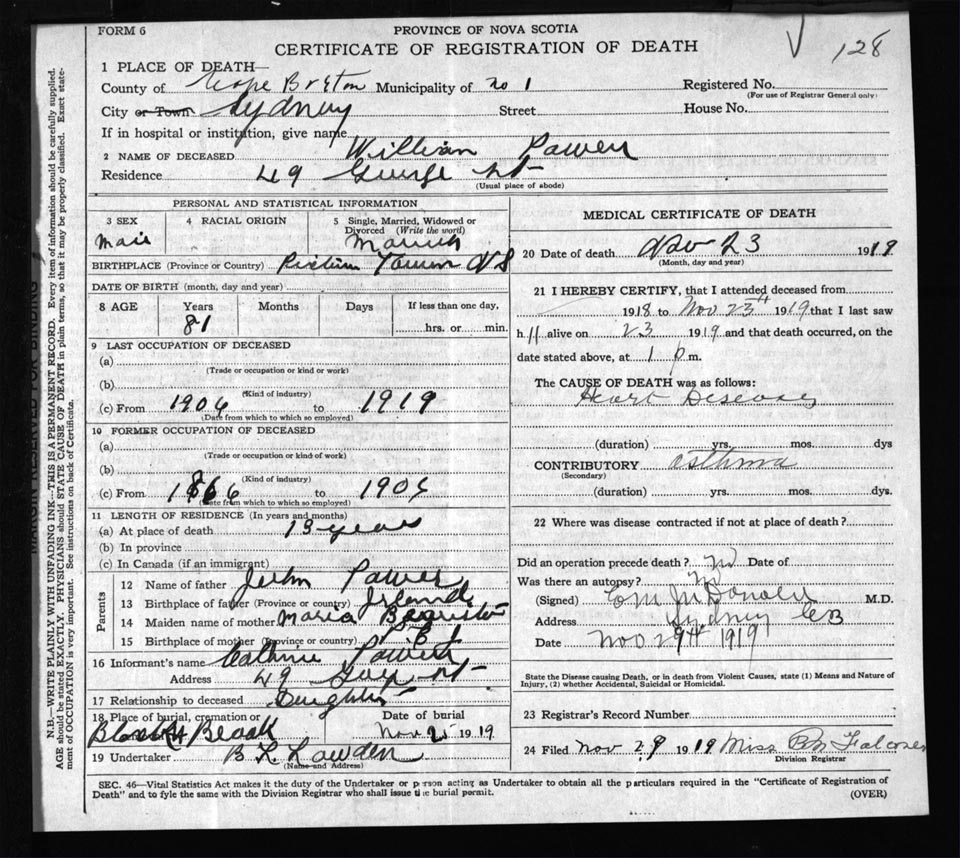 FORM 6
PROVINCE OF NOVA SCOTIA
CERTIFICATE OF REGISTRATION OF DEATH
V 128
1 PLACE OF DEATH—
County of Cape Breton Municipality of No 1 Registered No.
(For use of Registrar General only)
City or Town Sydney Street House No.
If in hospital or institution, give name
2 NAME OF DECEASED William Power
Residence 49 George St
(Usual place of abode)
PERSONAL AND STATISTICAL INFORMATION
3 SEX 4 RACIAL ORIGIN 5 Single, Married, Widowed or Divorced (Write the word)
Male Married
BIRTHPLACE (Province or Country) Town N S
DATE OF BIRTH (month, day and year)
8 AGE Years Months Days If less than one day,
81 hrs. or min.
9 LAST OCCUPATION OF DECEASED
(a)
(Trade or occupation or kind or work)
(b)
(Kind of industry)
(c) From 1906 to 1919
(Date from which to which so employed)
10 FORMER OCCUPATION OF DECEASED
(a)
(Trade or occupation or kind of work)
(b)
(Kind of industry)
(c) From 1866 to 1906
(Date from which to which so employed)
11 LENGTH OF RESIDENCE (In years and months)
(a) At place of death 13 years
(b) In province
(c) In Canada (if an immigrant)
Parents
12 Name of father John Power
13 Birthplace of father (Province or country)
14 Maiden name of mother Maria
15 Birthplace of mother (Province or country) P E I
16 Informant's name Cathrine Power
Address 49 St
17 Relationship to deceased Daughter
18 Place of burial, cremation or Date of burial
Beach Nov 25 1919
19 Undertaker B L Lowden
(Name and Address)
MEDICAL CERTIFICATE OF DEATH
20 Date of death Nov 23 1919
(Month, day and year)
21 I HEREBY CERTIFY, that I attended deceased from
1918 to Nov 23th 1919 that I last saw
h alive on 23 1919 and that death occurred, on the
date stated above, at 1 p m.
The CAUSE OF DEATH was as follows:
Heart Disease
(duration) yrs. mos. dys
CONTRIBUTORY asthma
(Secondary)
(duration) yrs. mos. dys.
22 Where was disease contracted if not at place of death?
Did an operation precede death? No Date of
Was there an autopsy? No
(Signed) McDonald M.D.
Address Sydney CB
Date Nov 29th 1919
State the Disease causing Death, or in death from Violent Causes, state (1) Means and Nature of
Injury, (2) whether Accidental, Suicidal or Homicidal.
23 Registrar's Record Number
24 Filed Nov 29 1919 Miss
Division Registrar
SEC. 46—Vital Statistics Act makes it the duty of the Undertaker or person acting as Undertaker to obtain all the particulars required in the "Certificate of Registration of
Death" and to fyle the same with the Division Registrar who shall issue the burial permit. (OVER)
MARGIN RESERVED FOR BINDING
N.B.—WRITE PLAINLY WITH UNFADING INK—THIS IS A PERMANENT RECORD. Every item of information should be carefully supplied.
AGE should be stated EXACTLY. PHYSICIANS should STATE CAUSE OF DEATH in plain terms, so that it may be properly classified. Exact state-
ment of OCCUPATION is very important. See instructions on back of Certificate.